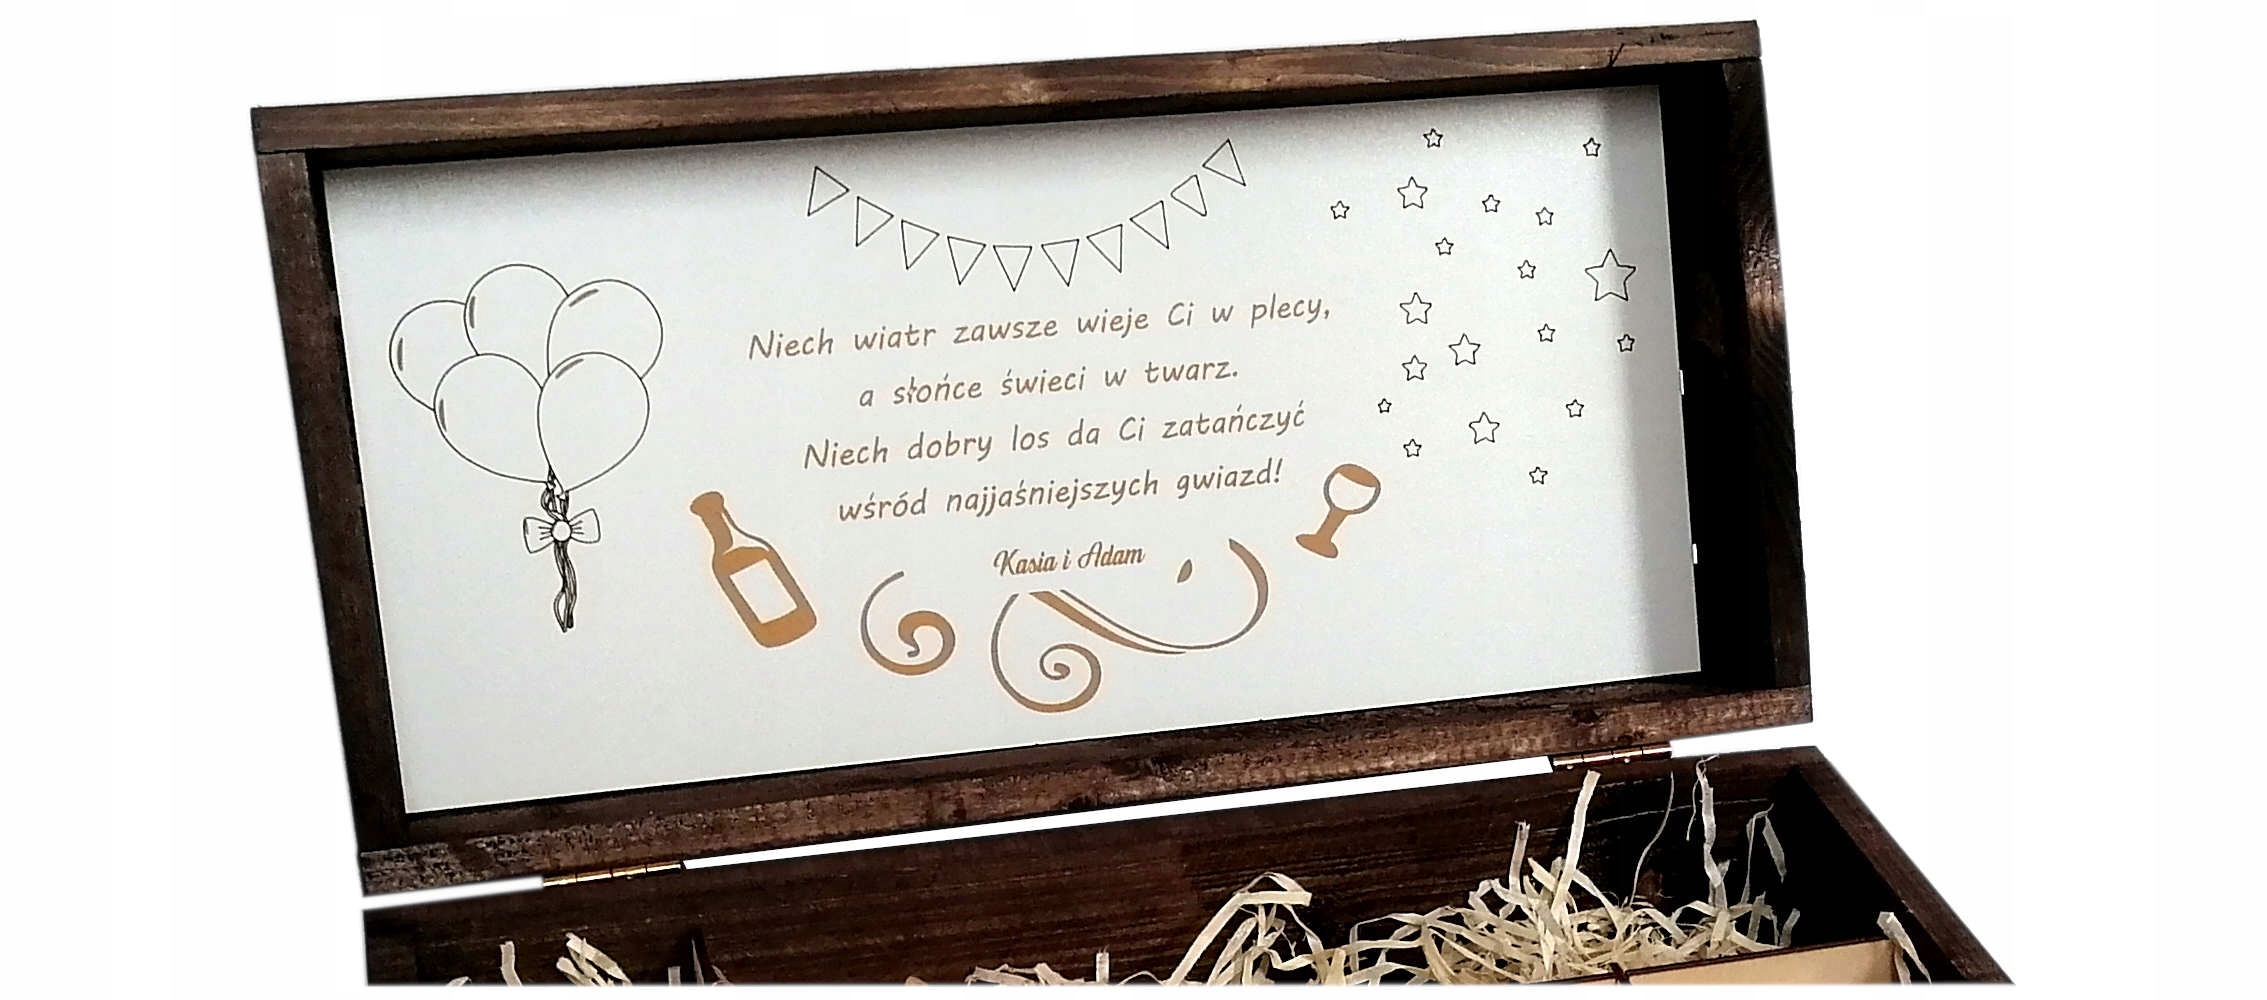 Niech wiatr zawsze wieje Ci w plecy,
a słońce świeci w twarz.
Niech dobry los da Ci zatańczyć
wśród najjaśniejszych gwiazd!
Kasia i Adam